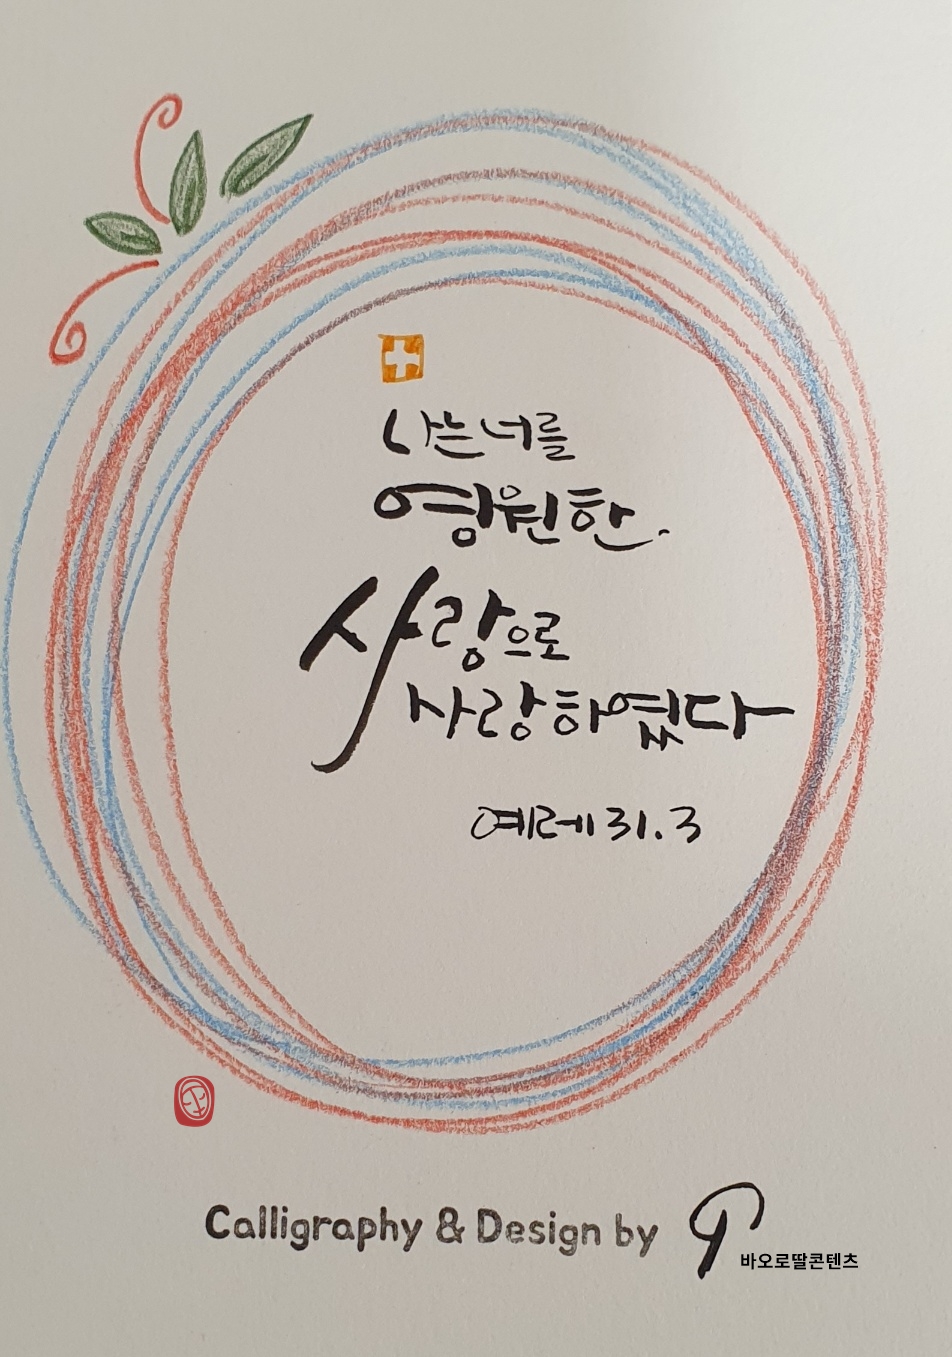 나는 너를
영원한
사랑으로
사랑하였다
예레 31.3
Calligraphy & Design by
바오로딸콘텐츠